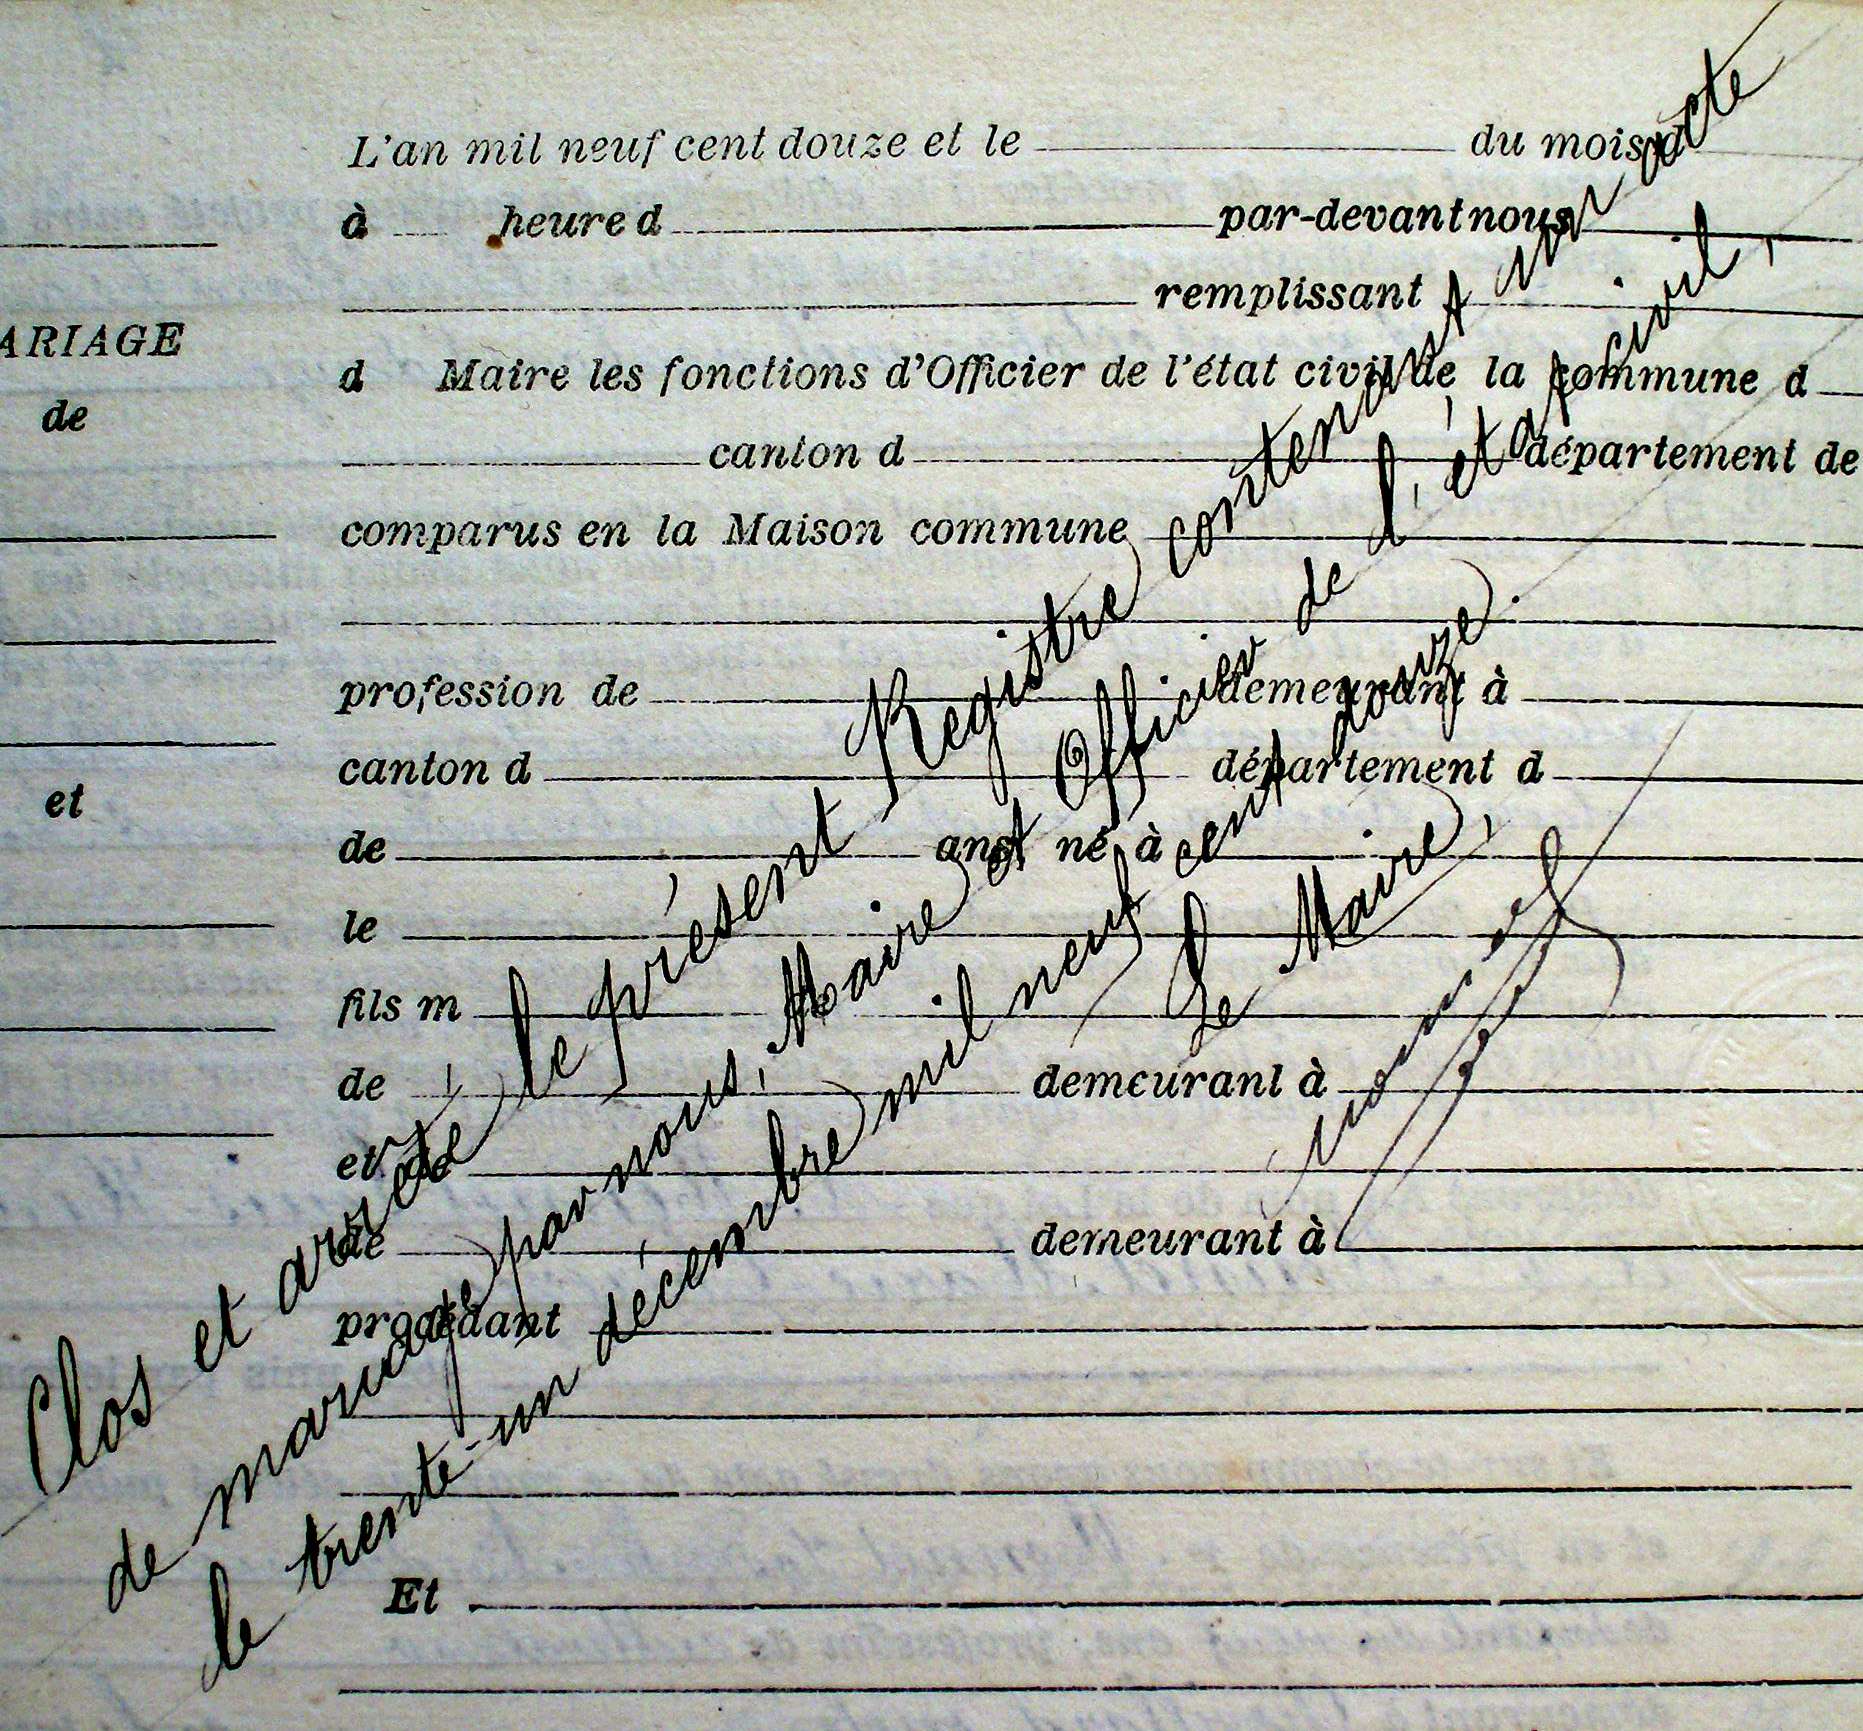 L'an mil neuf cent douze et le du mois d
à heure d par-devant nous
remplissant
d Maire les fonctions d'Officier de l'état civil de la commune d
canton d département de
comparus en la Maison commune
profession de demeurant à
canton d département d
de ans né à
le
fils m
de demeurant à
et d
de demeurant à
procédant
Et
ARIAGE
de
et
Clos et arrêté le présent Registre contenant un acte
de mariage par nous, Maire et Officier de l'état civil,
le trente-un décembre mil neuf cent douze.
Le Maire,